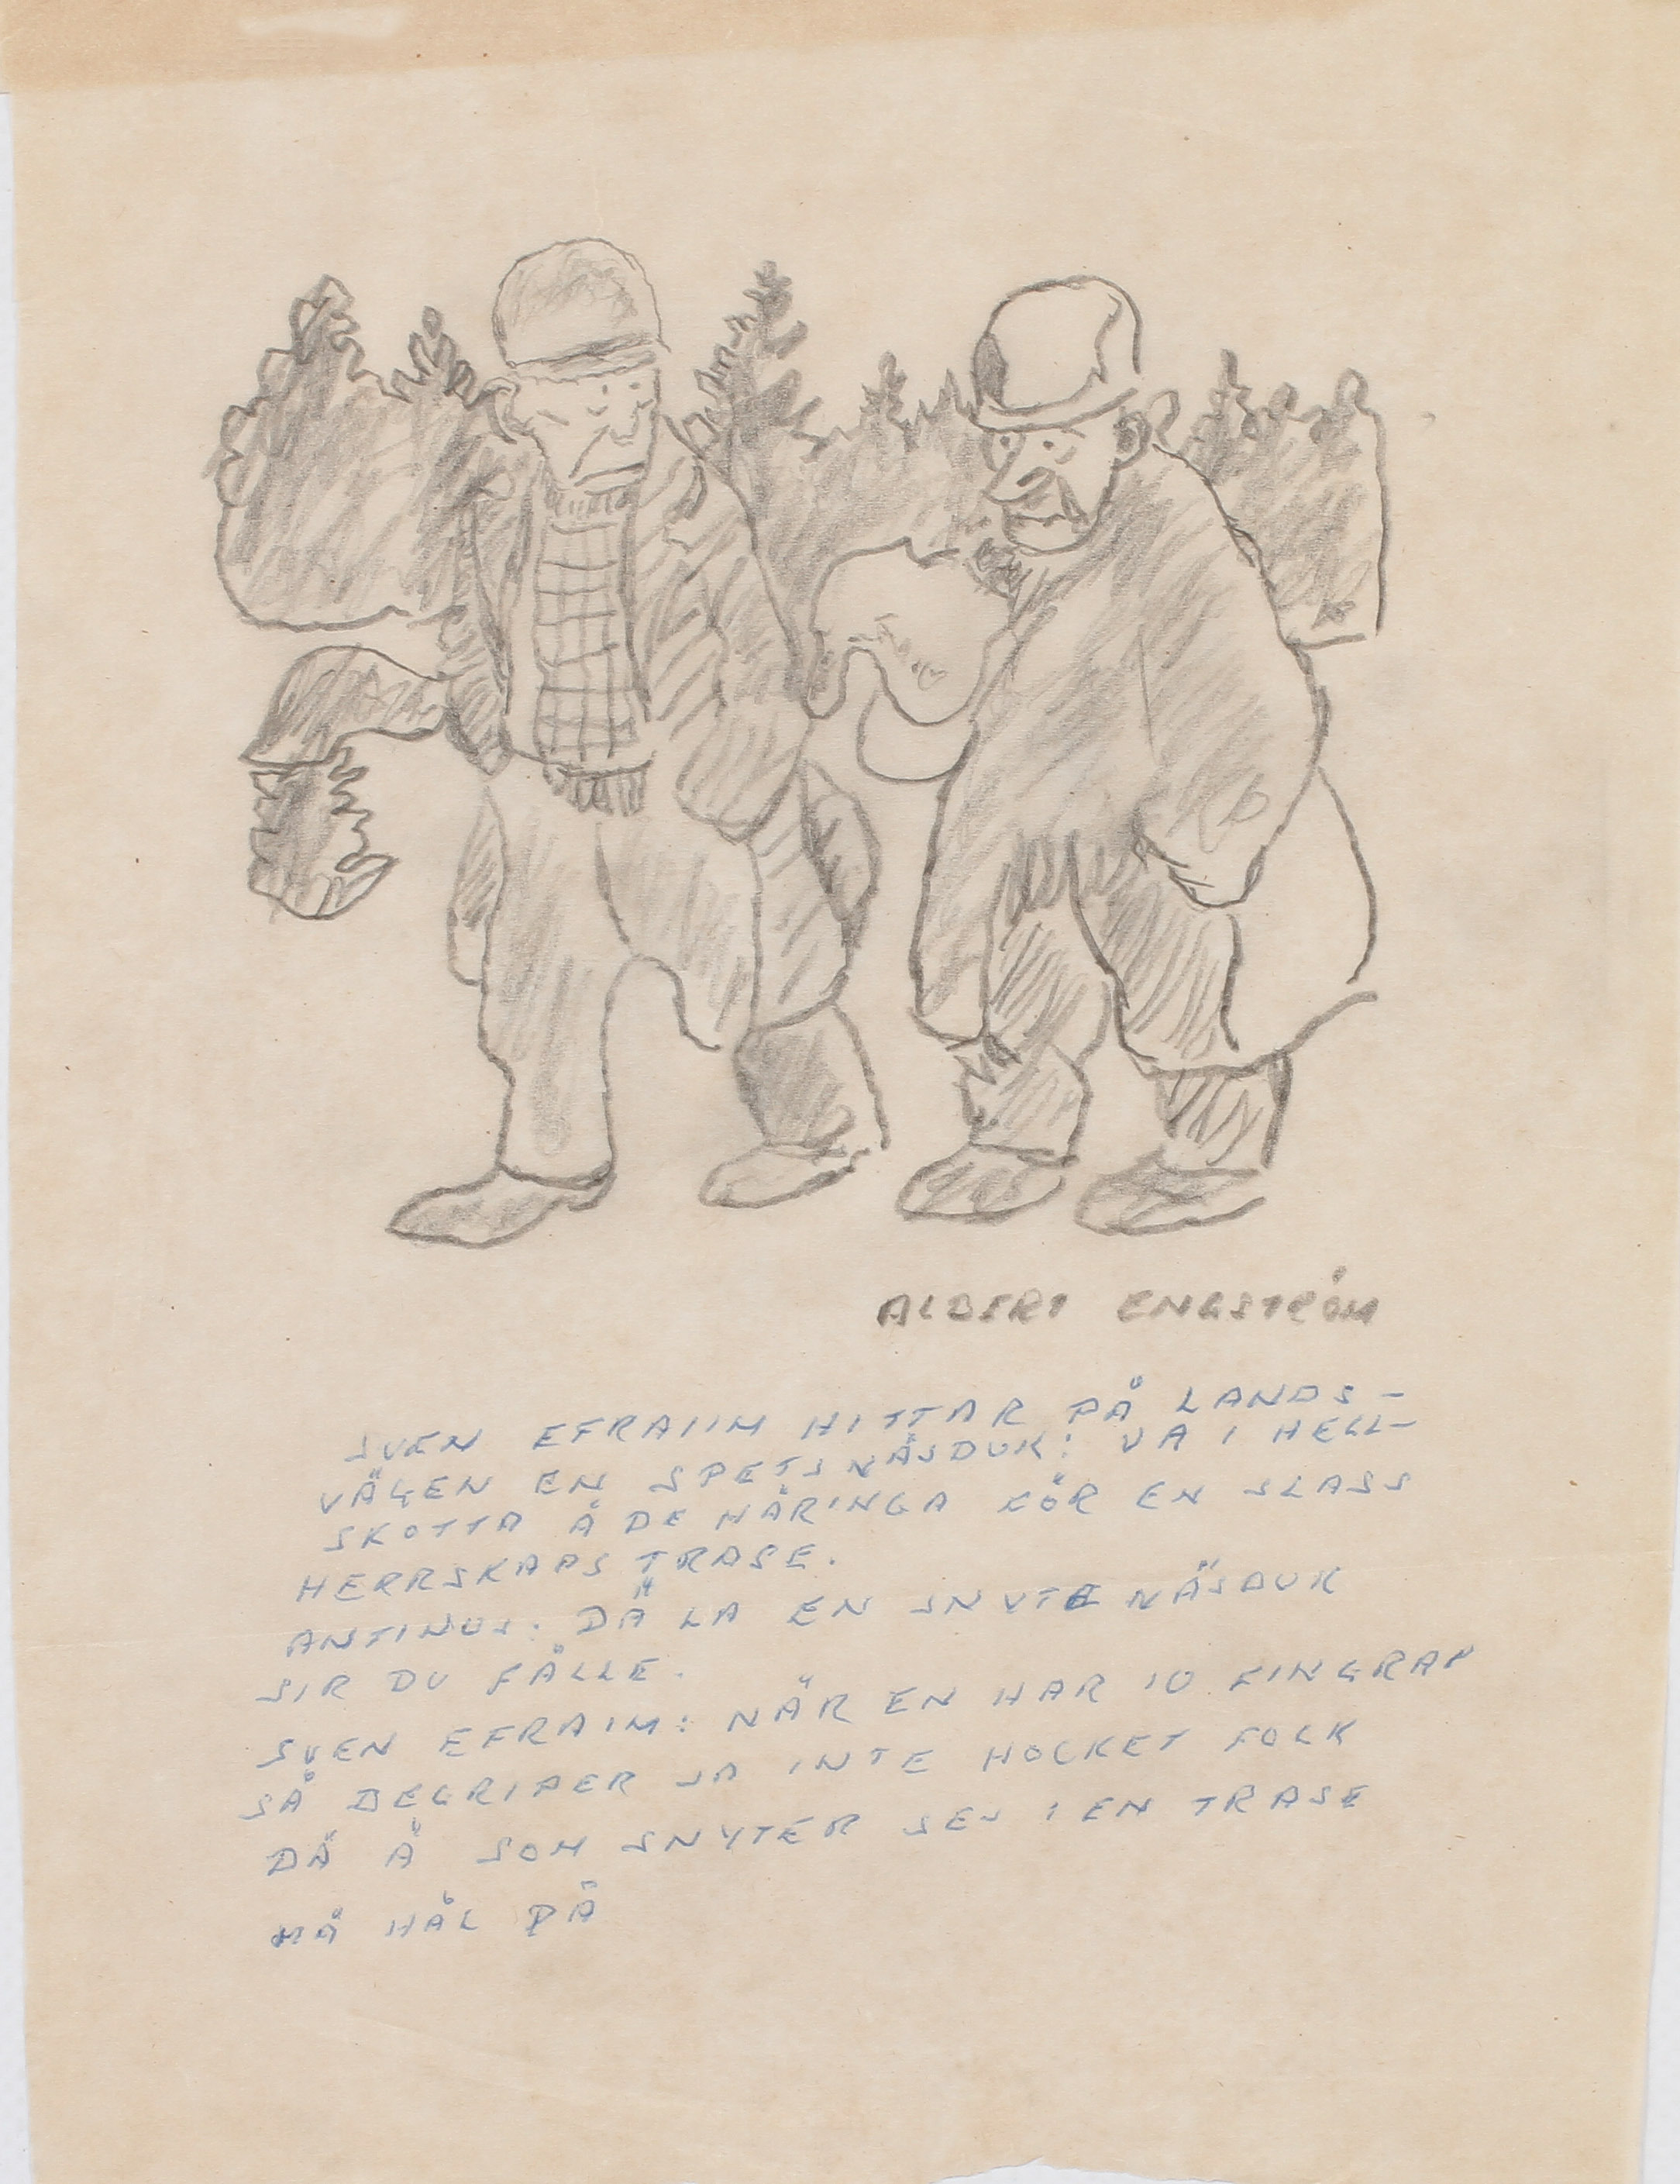 ALBERT ENGSTRÖM
SVEN EFRAIIM HITTAR PÅ LANDS-
VÄGEN EN SPETSNÄSDUK: VA I HELL-
SKOTTA Ä DE HÄRINGA FÖR EN SLASS
HERRSKAPSTRASE.
ANTINUS: DÄ LA EN SNYTENÄSDUK
SIR DU FÅLLE.
SVEN EFRAIM: NÄR EN HAR 10 FINGRAR
SÅ BEGRIPER JA INTE HOCKET FOLK
DÄ Ä SOM SNYTER SEJ I EN TRASE
MÄ HÅL PÅ